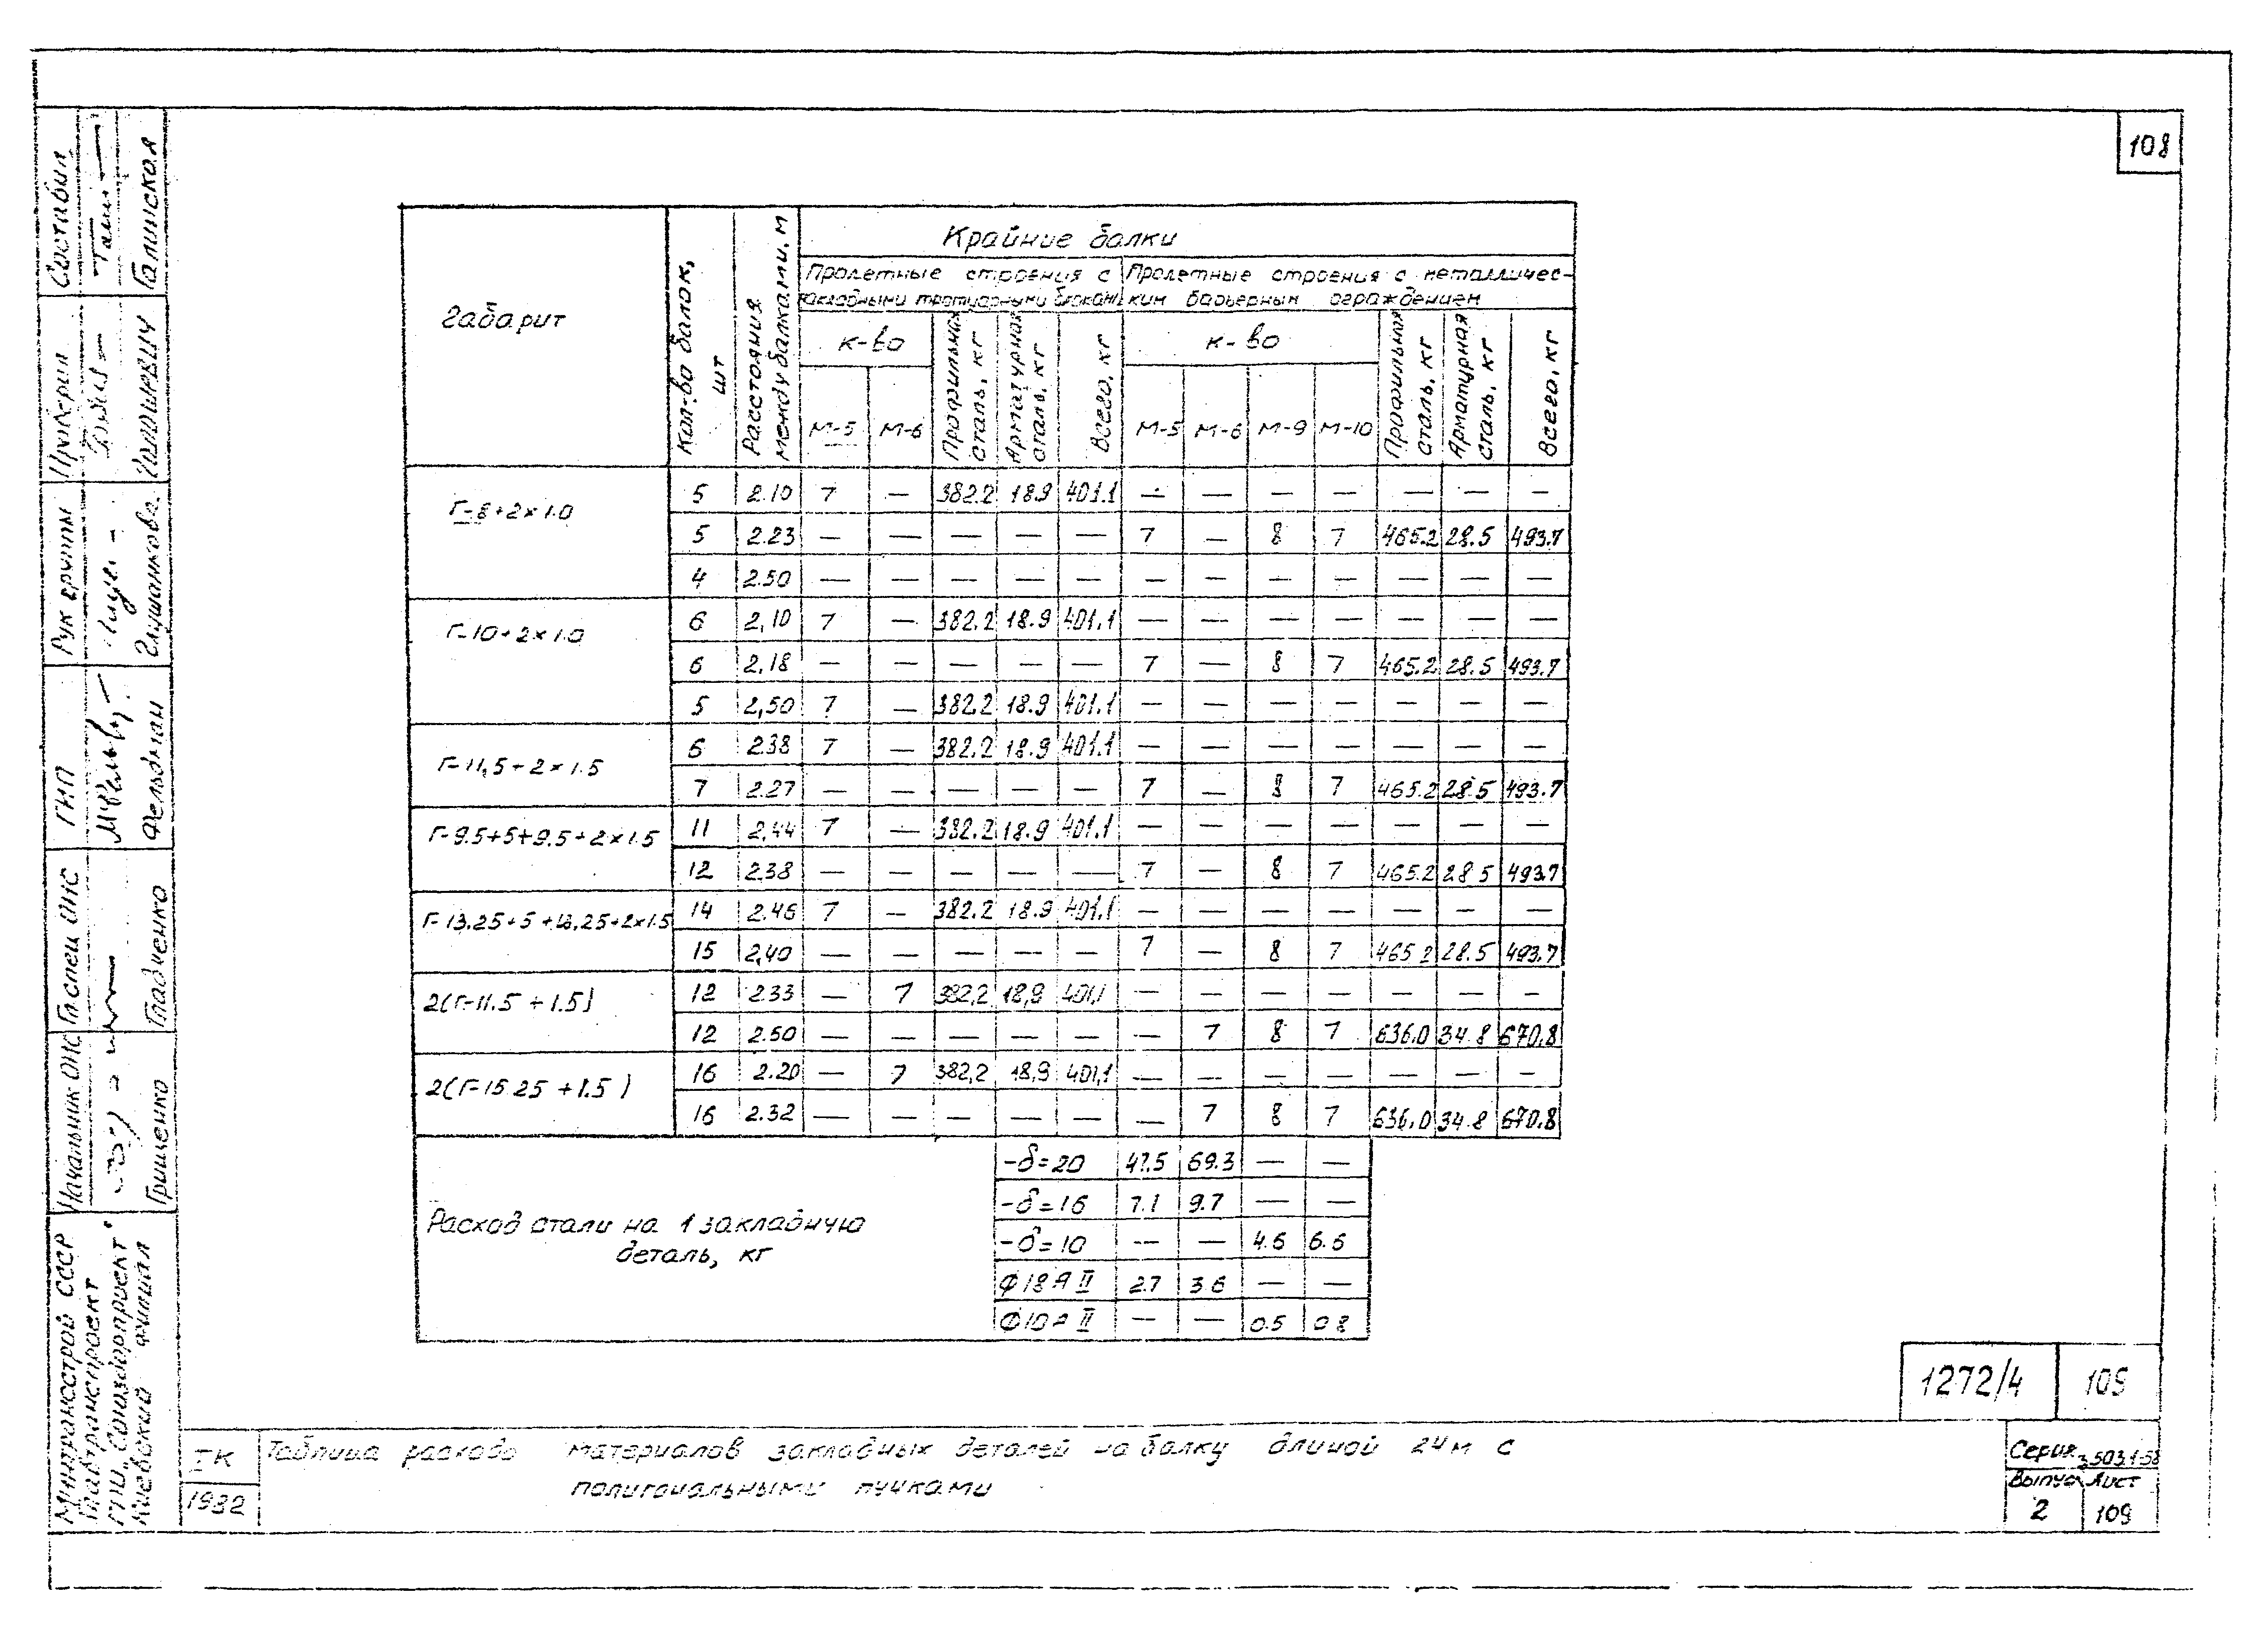 108
Крайние балки
Габарит
Кол-во балок, шт
Расстояния между балками, м
Пролетные строения с накладными тротуарными блоками
Пролетные строения с металличес-
ким барьерным ограждением
к-во
Профильная сталь, кг
Арматурная сталь, кг
Всего, кг
к-во
Профильная сталь, кг
Арматурная сталь, кг
Всего, кг
М-5 М-6 М-5 М-6 М-9 М-10
Г-8+2×1.0
5 2.10 7 — 382.2 18.9 401.1 — — — — — — —
5 2.23 — — — — — 7 — 8 7 465.2 28.5 493.7
4 2.50 — — — — — — — — — — — —
Г-10+2×1.0
6 2,10 7 — 382.2 18.9 401.1 — — — — — — —
6 2,18 — — — — — 7 — 8 7 465.2 28.5 493.7
5 2,50 7 — 382.2 18.9 401.1 — — — — — — —
Г-11,5+2×1.5
6 2.38 7 — 382.2 18.9 401.1 — — — — — — —
7 2.27 — — — — — 7 — 8 7 465.2 28.5 493.7
Г-9.5+5+9.5+2×1.5
11 2.44 7 — 382.2 18.9 401.1 — — — — — — —
12 2.38 — — — — — 7 — 8 7 465.2 28.5 493.7
Г-13.25+5+13,25+2×1.5
14 2.46 7 — 382.2 18.9 401.1 — — — — — — —
15 2,40 — — — — — 7 — 8 7 465.2 28.5 493.7
2(Г-11.5+1.5)
12 2.33 — 7 382,2 18,9 401,1 — — — — — — —
12 2.50 — — — — — — 7 8 7 636.0 34.8 670.8
2(Г-15.25+1.5)
16 2.20 — 7 382,2 18,9 401,1 — — — — — — —
16 2.32 — — — — — — 7 8 7 636.0 34.8 670.8
Расход стали на 1 закладную
деталь, кг
-δ=20 47.5 69.3 — —
-δ=16 7.1 9.7 — —
-δ=10 — — 4.6 6.6
Ф18АII 2.7 3.6 — —
Ф10АII — — 0.5 0.8
1272/4 109
ТК
1982
Таблица расхода материалов закладных деталей на балку длиной 24м с
полигональными пучками
Серия 3.503.1-58
Выпуск Лист
2 109
Составил Галинская
Проверил
Рук группы Глушанкова
ГИП Фельдман
Гл спец ОИС Гладченко
Начальник ОИС Гриценко
Минтрансстрой СССР
Главтранспроект
ГПИ „Союздорпроект"
Киевский филиал